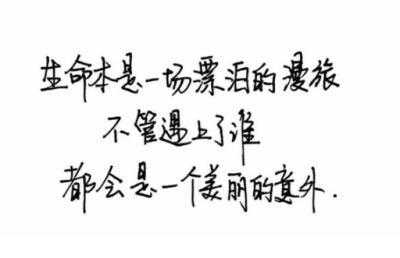 生命本是一场漂泊的漫旅
不管遇上了谁
都会是一个美丽的意外.